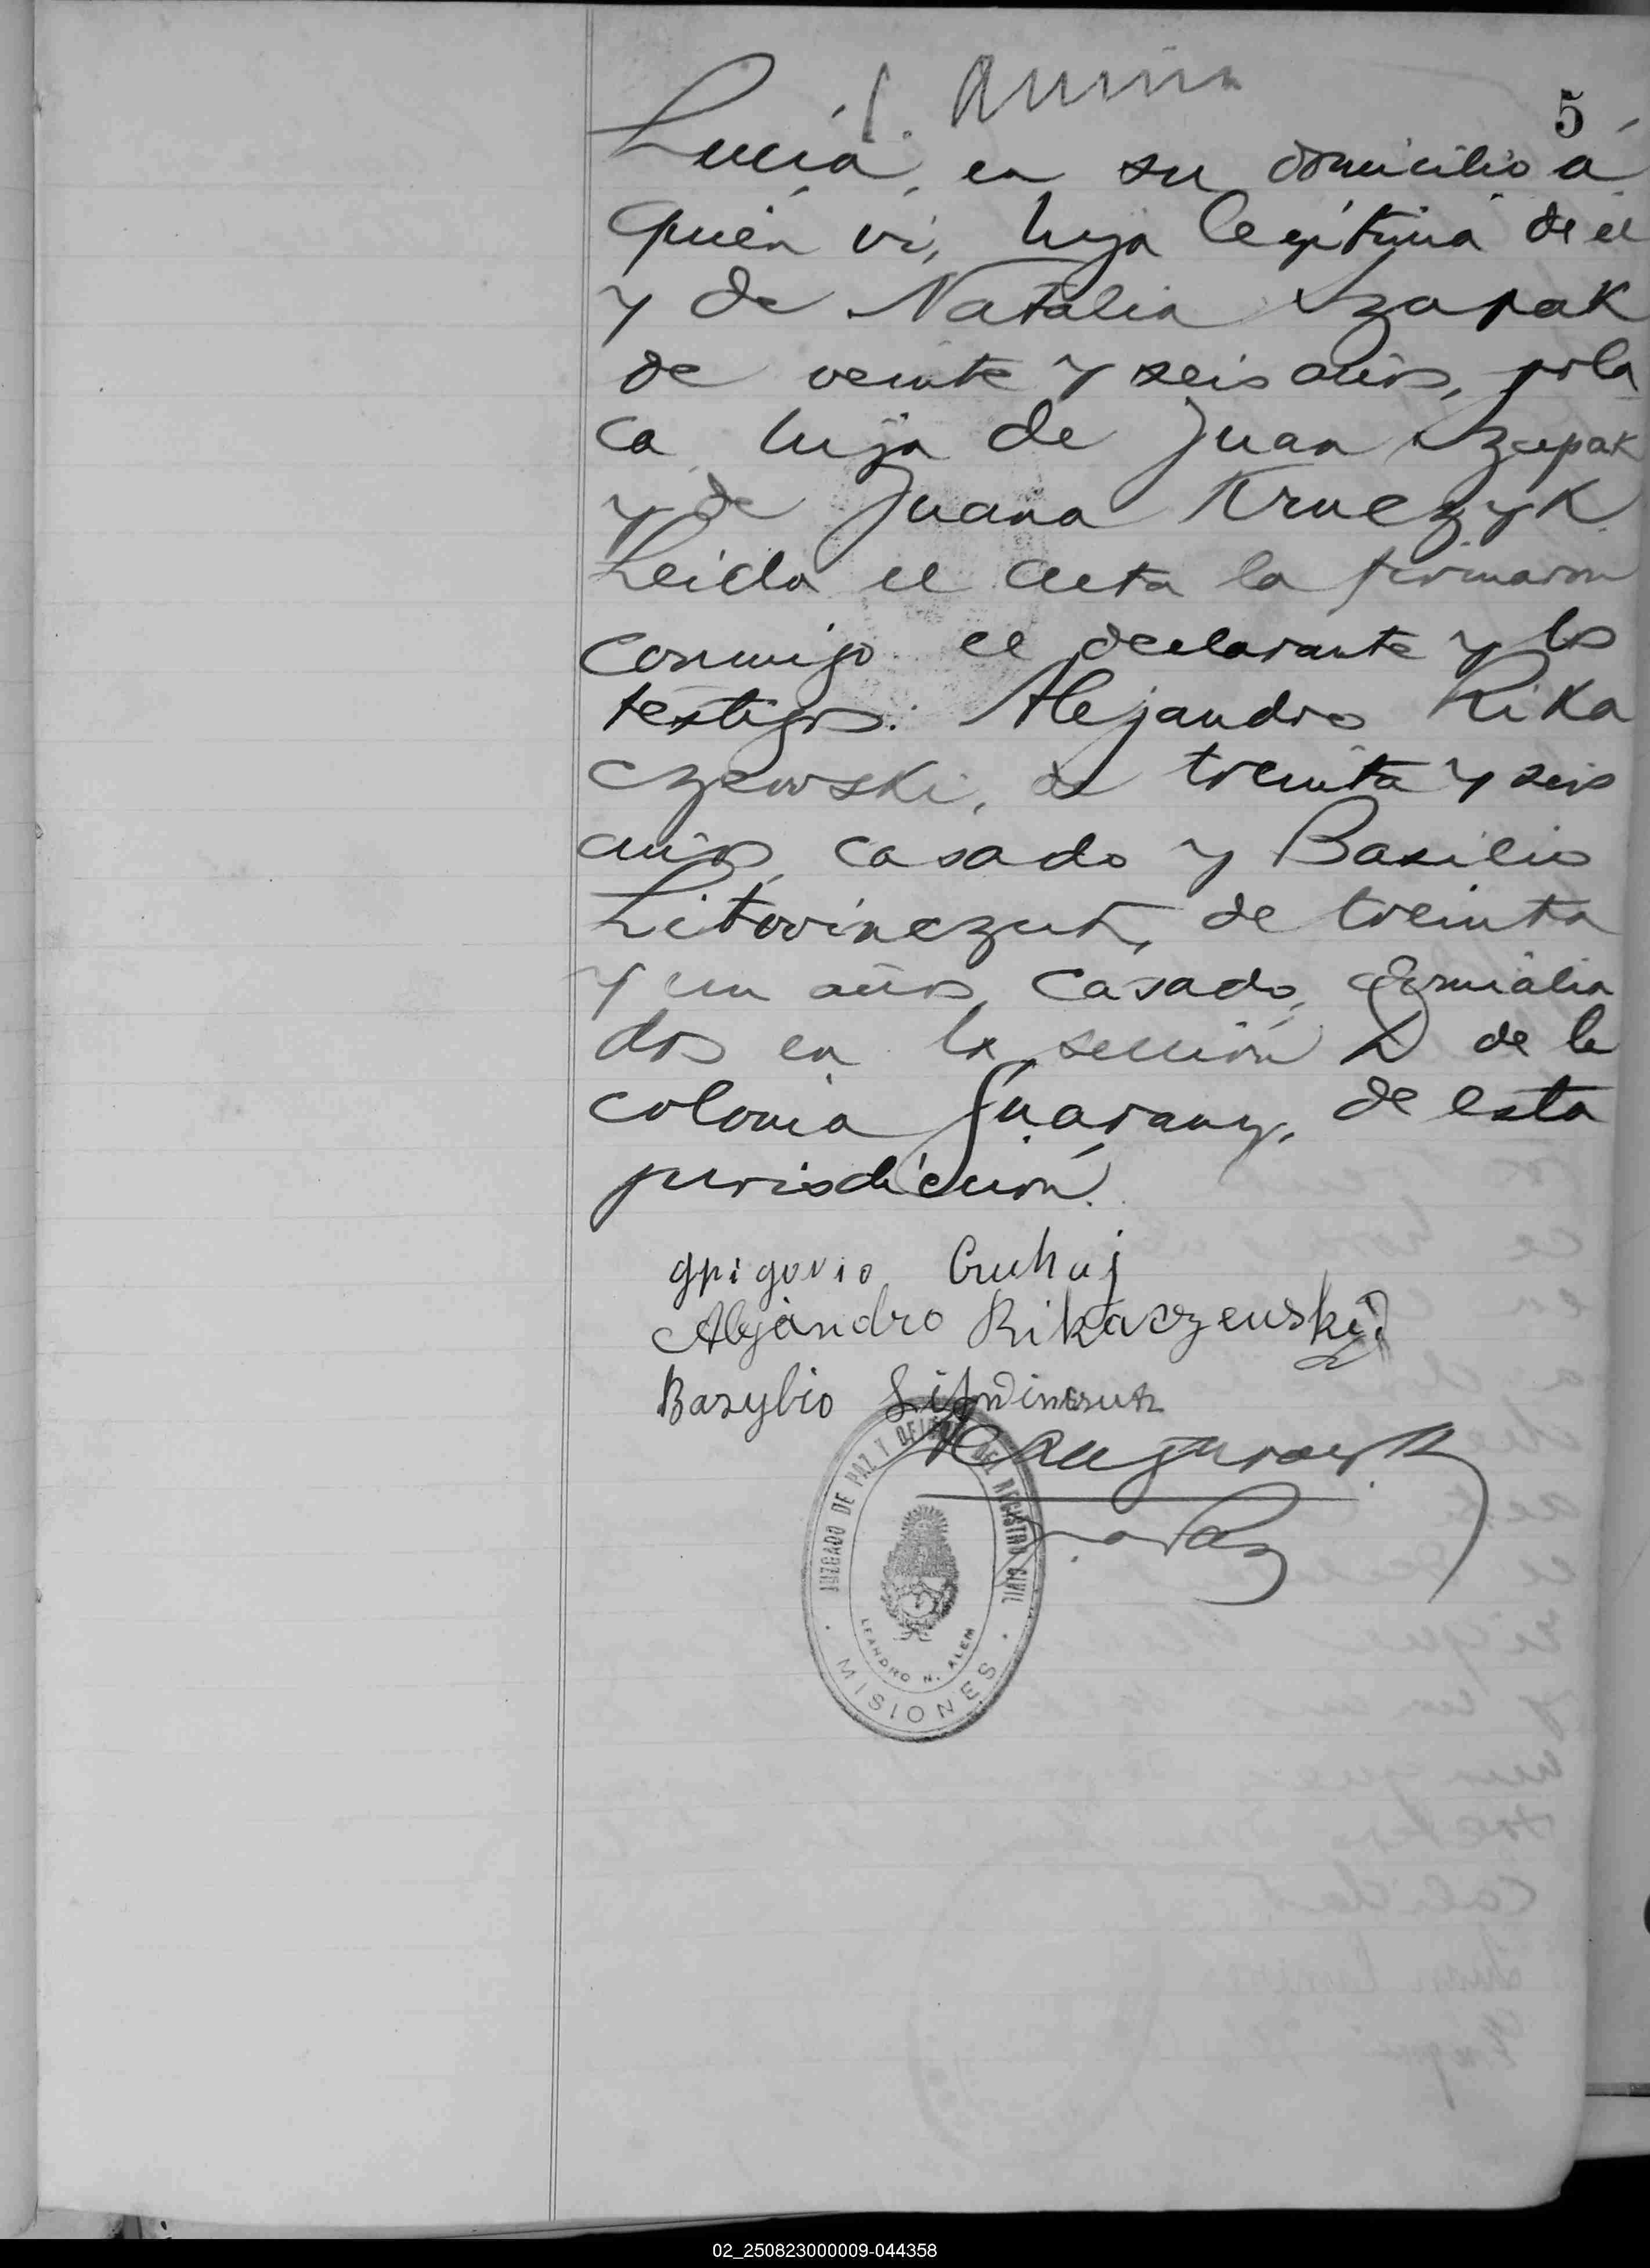 5
Lucía, en su domicilio á
quién vi, hija legítima de él
y de Natalia Szapak
de veinte y seis años, pola
ca hija de Juan Szepak
y de Juana Kruczyk
Leida el acta la firmaron
conmigo el declarante y los
testigos: Alejandro Rika
czewski, de treinta y seis
años, casado y Basilio
Litovinczuk, de treinta
y un años, casado, domicilia
dos en la sección D de la
colonia Guarany, de esta
jurisdicción.
Alejandro Rikaczewski
Basylio
JUZGADO DE PAZ Y DEL REGISTRO CIVIL
LEANDRO N. ALEM
MISIONES
02_250823000009-044358